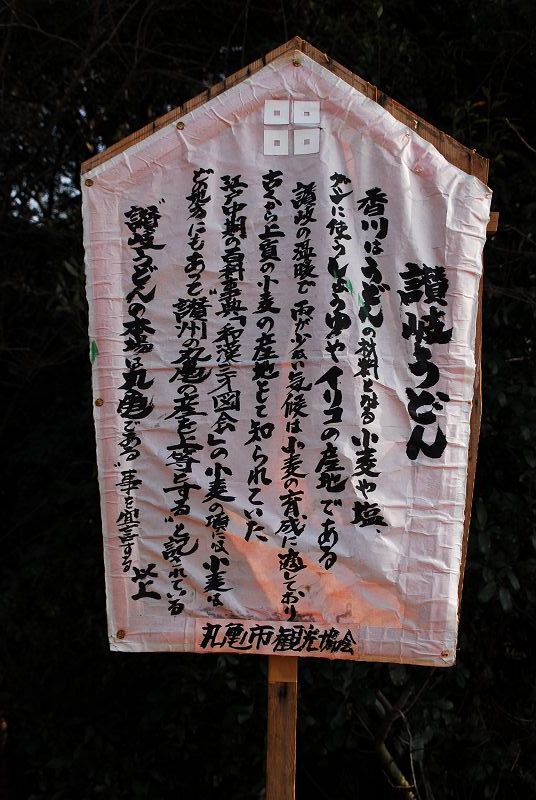 讃岐うどん
香川はうどんの材料となる小麦や塩、
ダシに使うしょうゆやイリコの産地である
讃岐の温暖で雨が少ない気候は小麦の育成に適しており
古くから上質の小麦の産地として知られていた
江戸中期の百科事典「和漢三才図会」の小麦の項には、小麦は
どの地方にもあって"讃州の丸亀の産を上等とする"と記されている
"讃岐うどんの本場は丸亀である"事を宣言する 以上
丸亀市観光協会